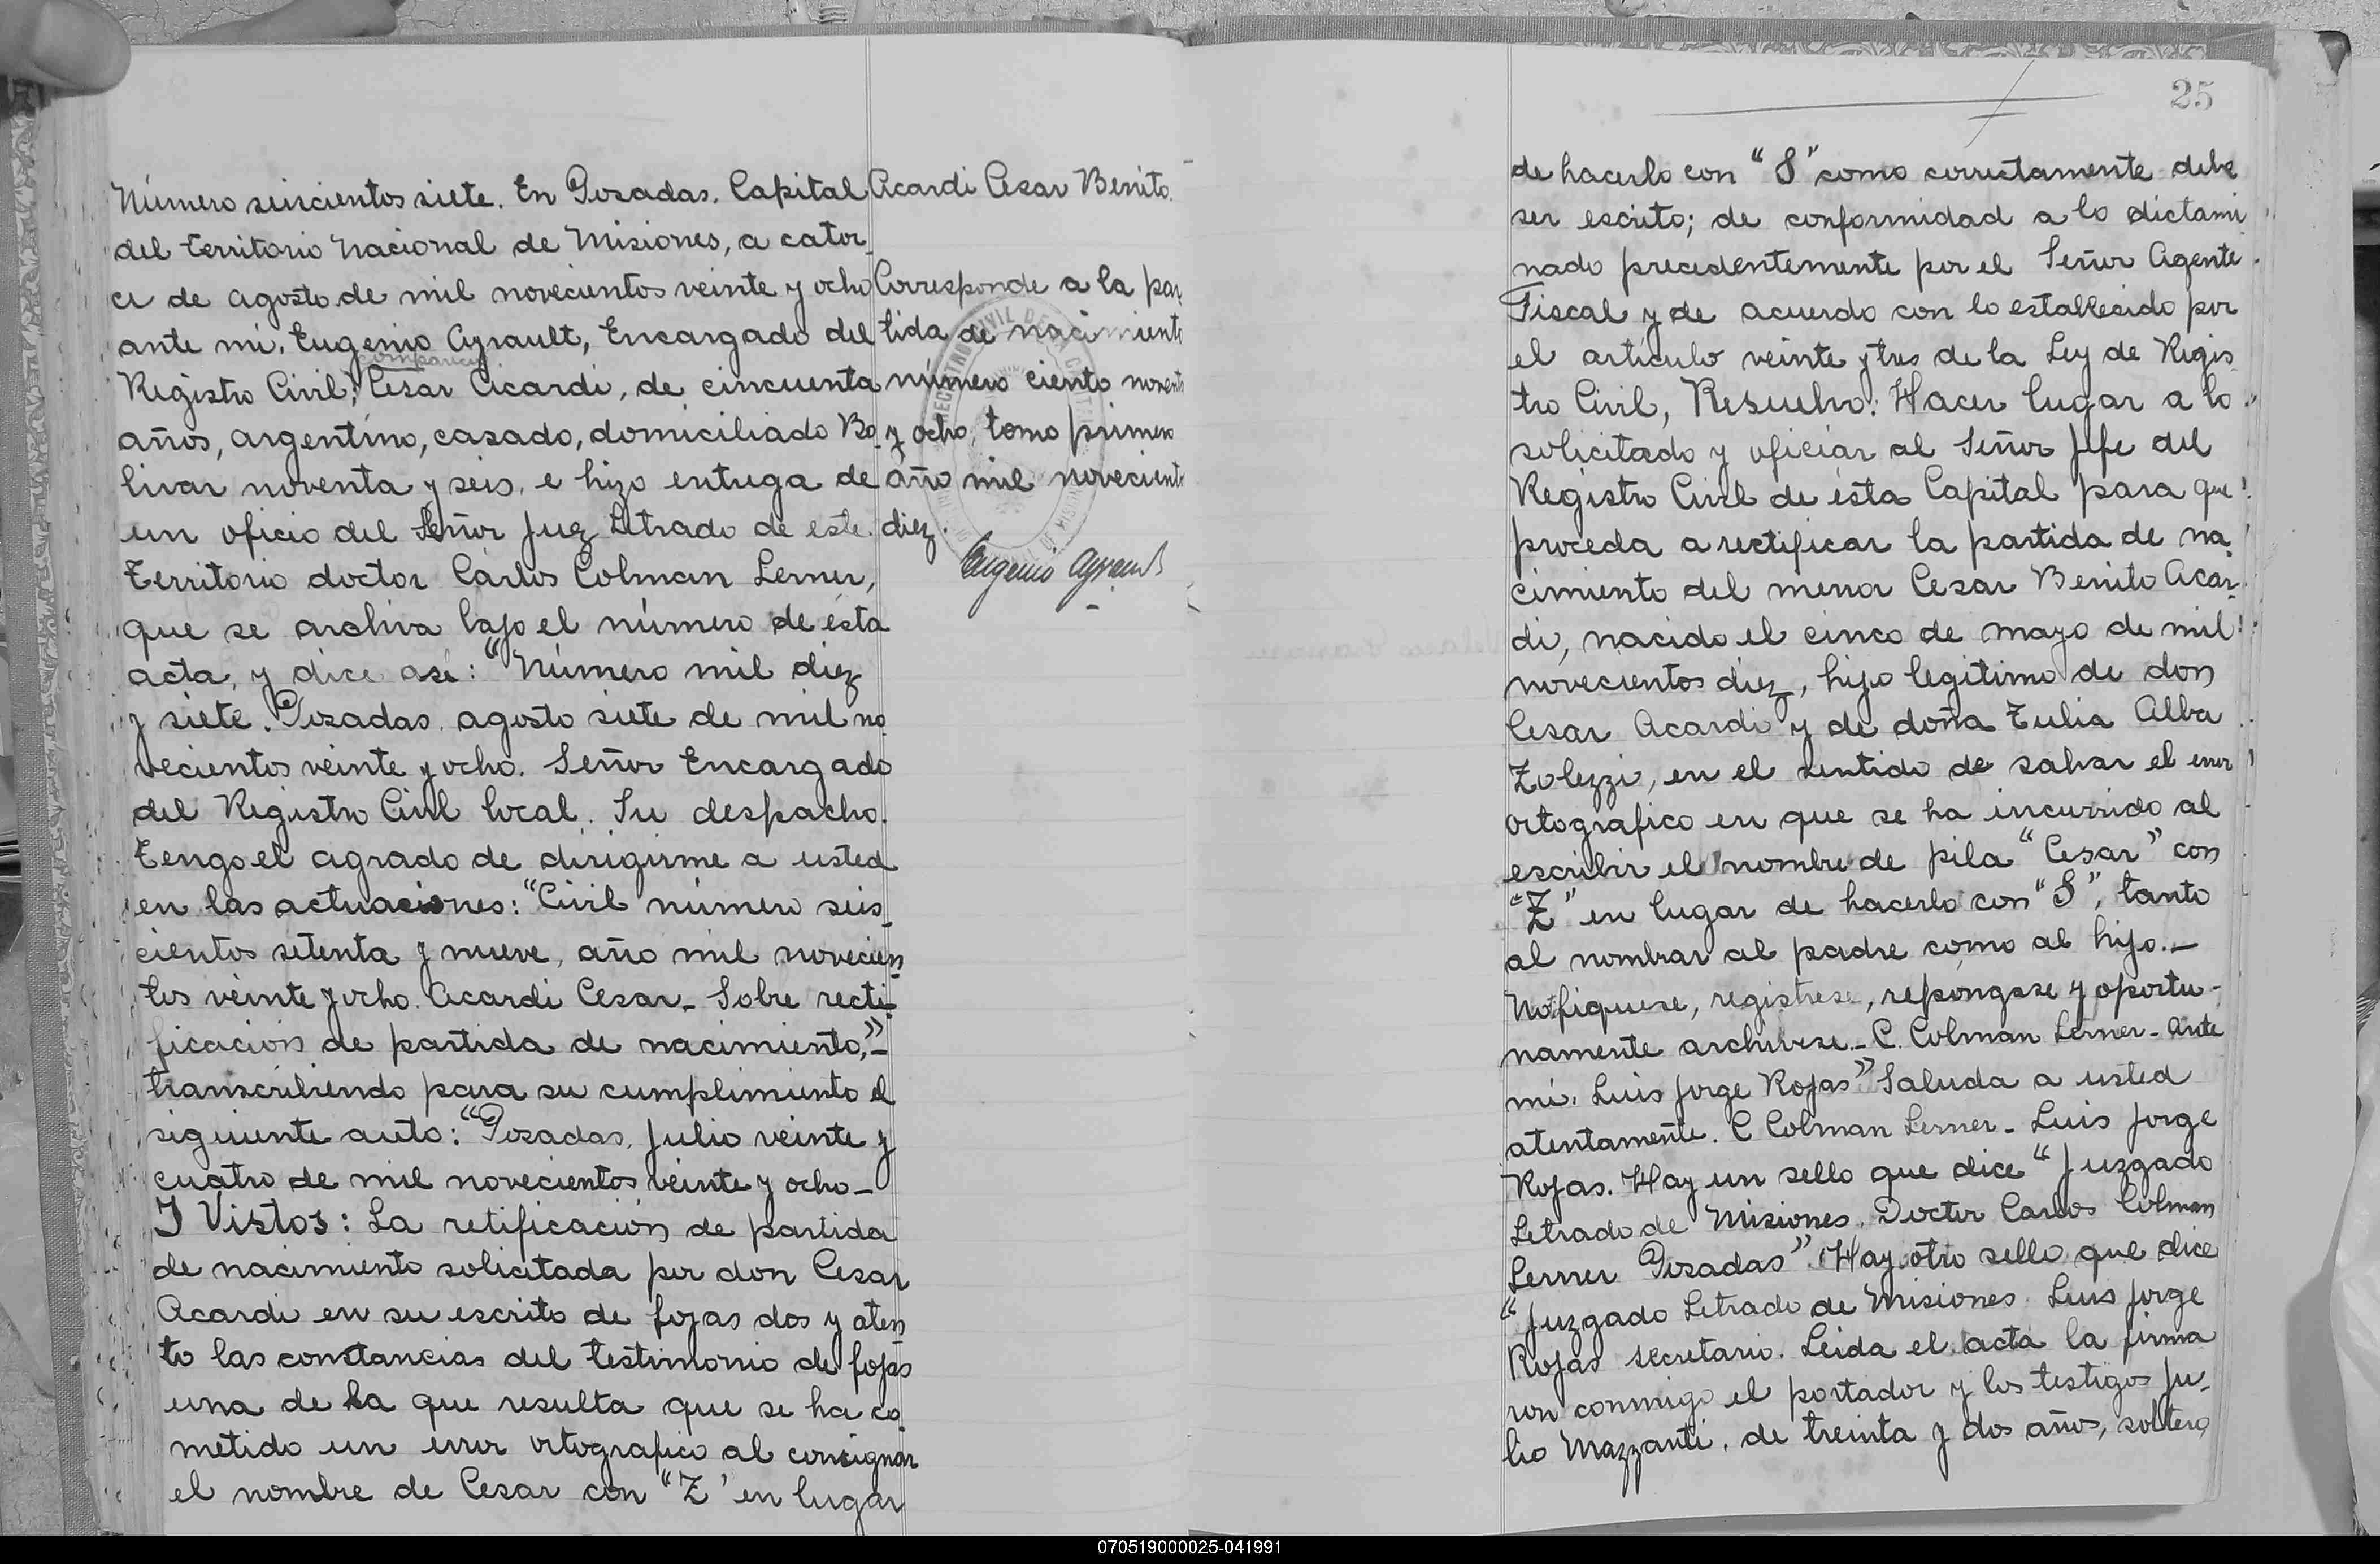 Número seiscientos siete. En Posadas, Capital
del Territorio Nacional de Misiones, a cator-
ce de agosto de mil novecientos veinte y ocho
ante mi, Eugenio Ayrault, Encargado del
comparece
Registro Civil; Cesar Acardi, de cincuenta
años, argentino, casado, domiciliado Bo-
livar noventa y seis, e hizo entrega de
un oficio del Señor Juez Letrado de este
Territorio doctor Carlos Colman Lerner,
que se archiva bajo el número de ésta
acta, y dice asi: "Número mil diez
y siete. Posadas, agosto siete de mil no
vecientos veinte y ocho. Señor Encargado
del Registro Civil local. Su despacho.
Tengo el agrado de dirigirme a usted
en las actuaciones: "Civil número seis-
cientos setenta y nueve, año mil novecien-
tos veinte y ocho. Acardi Cesar_ Sobre recti-
ficación de partida de nacimiento,"_
transcribiendo para su cumplimiento el
siguiente auto: "Posadas, Julio veinte y
cuatro de mil novecientos veinte y ocho_
Y Vistos: La retificación de partida
de nacimiento solicitada por don Cesar
Acardi en su escrito de fojas dos y aten-
to las constancias del testimonio de fojas
una de la que resulta que se ha co-
metido un error ortografico al consignar
el nombre de Cesar con "Z" en lugar
Acardi Cesar Benito.
Corresponde a la par
tida de nacimiento
número ciento noventa
y ocho, tomo primero
año mil novecientos
diez.
Eugenio Ayrault
25
de hacerlo con "S" como correctamente debe
ser escrito; de conformidad a lo dictami
nado precedentemente por el Señor Agente
Fiscal y de acuerdo con lo establecido por
el artículo veinte y tres de la Ley de Regis
tro Civil, Resuelvo: Hacer lugar a lo
solicitado y oficiar al Señor Jefe del
Registro Civil de ésta Capital para que
proceda a rectificar la partida de na
cimiento del menor Cesar Benito Acar-
di, nacido el cinco de mayo de mil
novecientos diez, hijo legitimo de don
Cesar Acardi y de doña Tulia Alba
Zolezzi, en el sentido de salvar el error
ortografico en que se ha incurrido al
escribir el nombre de pila "Cesar" con
"Z" en lugar de hacerlo con "S", tanto
al nombrar al padre como al hijo._
Notifiquese, registrese, repóngase y oportu-
namente archivese._ C. Colman Lerner_ Ante
mi. Luis Jorge Rojas" Saluda a usted
atentamente. C Colman Lerner_ Luis Jorge
Rojas. Hay un sello que dice "Juzgado
Letrado de Misiones. Doctor Carlos Colman
Lerner Posadas". Hay otro sello que dice
"Juzgado Letrado de Misiones Luis Jorge
Rojas secretario. Leida el acta la firma
ron conmigo el portador y los testigos Ju-
lio Mazzanti, de treinta y dos años, soltero
070519000025-041991